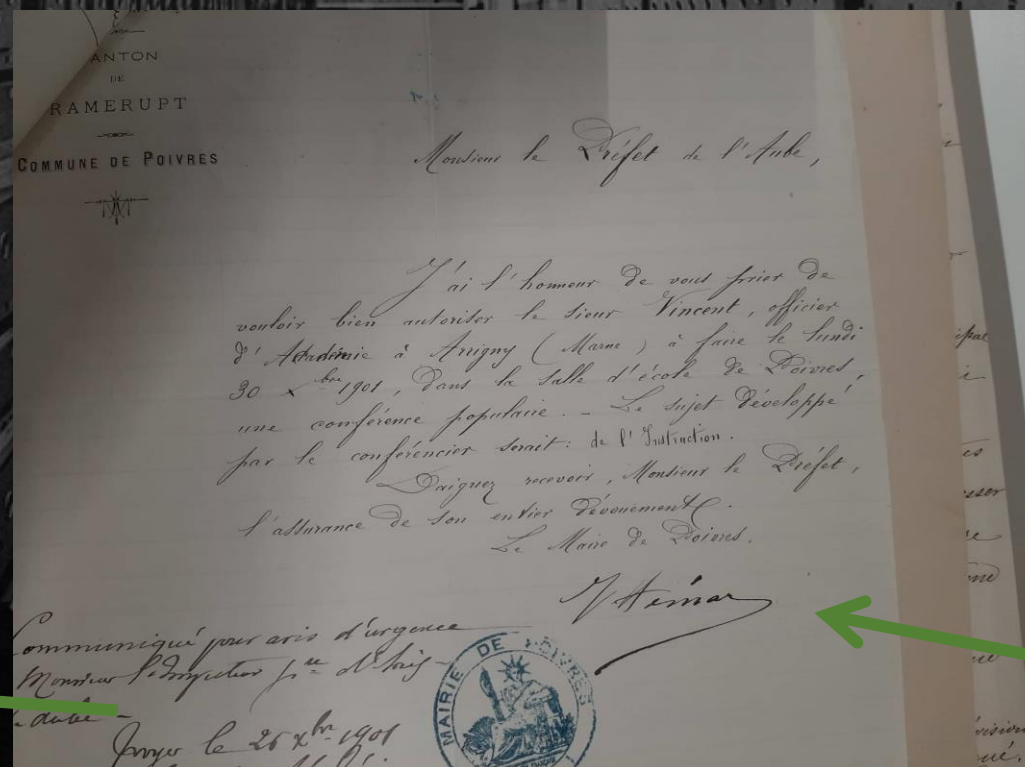 ANTON
DE
RAMERUPT
COMMUNE DE POIVRES
Monsieur le Préfet de l'Aube,
J'ai l'honneur de vous prier de
vouloir bien autoriser le sieur Vincent, officier
d'Académie à Arrigny (Marne) à faire le lundi
30 xbre 1901, dans la salle d'école de Poivres,
une conférence populaire. _ Le sujet développé
par le conférencier serait : de l'Instruction.
Daignez recevoir, Monsieur le Préfet,
l'assurance de son entier dévouement.
Le Maire de Poivres.
Hémar
Communiqué pour avis d'urgence
Monsieur l'Inspecteur
Troyes le 26 xbre 1901
MAIRIE DE POIVRES